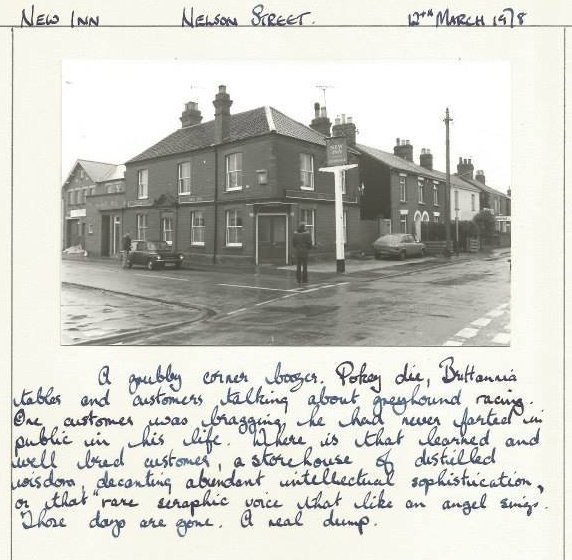 New Inn Nelson Street. 12TH March 1978
NEW INN
A grubby corner boozer. Pokey die, Brittannia
tables and customers talking about greyhound racing.
One customer was bragging he had never farted in
public in his life. Where is that learned and
well bred customer, a storehouse of distilled
wisdom, decanting abundant intellectual sophistication,
or that "rare seraphic voice that like an angel sings.
Those days are gone. A real dump.